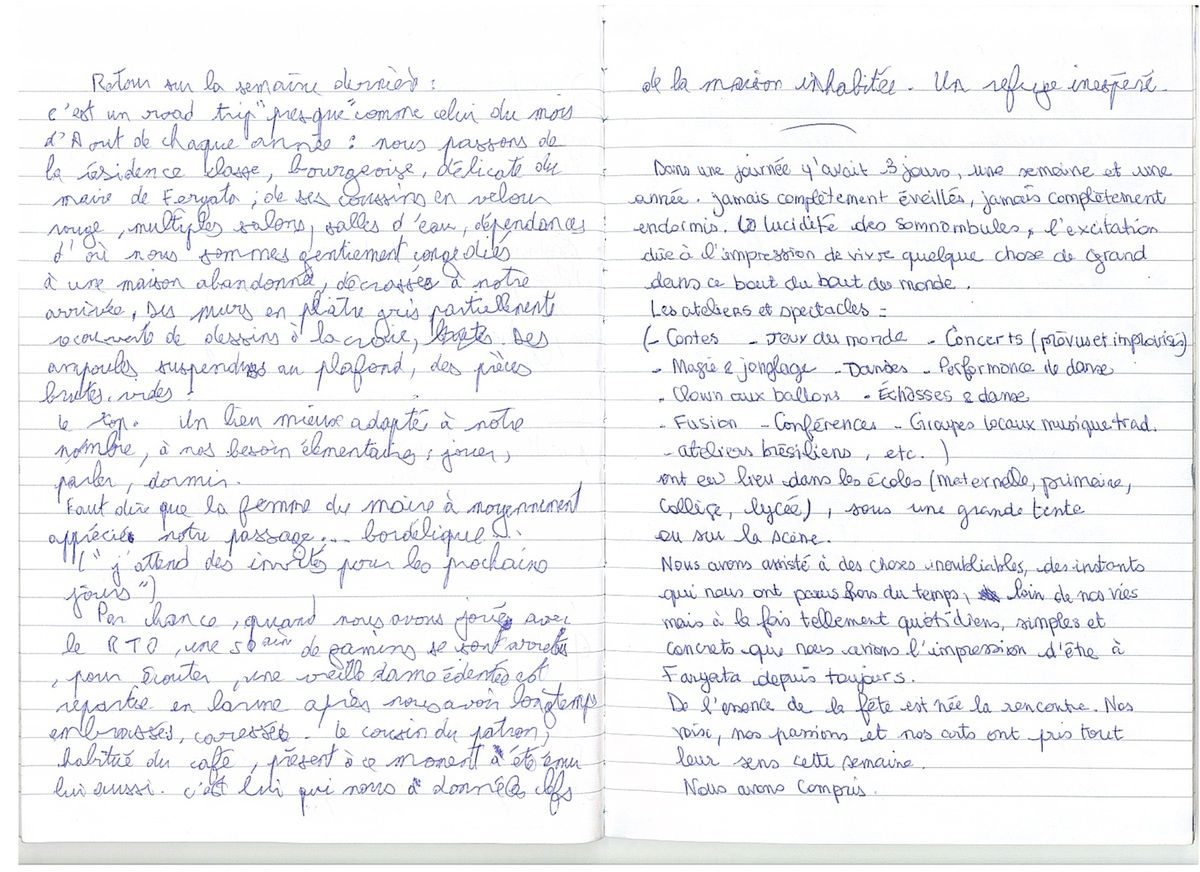 Retour sur la semaine dernière :
c'est un road trip "presque" comme celui du mois
d'Aout de chaque année : nous passons de
la résidence classe, bourgeoise, délicate du
maire de Feryata ; de ses coussins en velour
rouge, multiples salons, salles d'eau, dépendances
d'où nous sommes gentiement congediés
à une maison abandonné, décrassée à notre
arrivée, Des murs en plâtre gris partiellente
recouverts de dessins à la craie, Des
ampoules suspendues au plafond, des pièces
brutes, vides.
Le top. Un lieu mieux adapté à notre
nombre, à nos besoin élémentaires ; jouer,
parler, dormir.
Faut dire que la femme du maire à moyennement
apprécié notre passage... bordélique...
("j'attend des invités pour les prochains
jours")
Par chance, quand nous avons joué avec
le RTO, une 50aine de gamins se sont arretés
, pour écouter, une vieille dame édentée est
repartie en larme après nous avoir longtemps
embrassés, caressés. le cousin du patron,
habitué du café, présent à ce moment à été ému
lui aussi. c'est lui qui nous a donné les clefs
de la maison inhabitée. Un refuge inespéré.
Dans une journée y'avait 3 jours, une semaine et une
année. jamais complètement éveillés, jamais complètement
endormis. La lucidité des somnambules, l'excitation
dûe à l'impression de vivre quelque chose de Grand
dans ce bout du bout du monde.
Les ateliers et spectacles =
(- Contes - Tour du monde - Concerts (prévus et improvisés)
- Magie & jonglage - Danses - Performance de danse
- Clown aux ballons - Échasses & danse
- Fusion - Conférences - Groupes locaux musique trad.
- ateliers brésiliens, etc.)
ont eu lieu dans les écoles (maternelle, primaire,
Collège, lycée), sous une grande tente
ou sur la scène.
Nous avons assisté à des choses inoubliables, des instants
qui nous ont parus hors du temps, loin de nos vies
mais à la fois tellement quotidiens, simples et
concrets que nous avions l'impression d'être à
Faryata depuis toujours.
De l'essence de la fête est née la rencontre. Nos
voix, nos passions et nos arts ont pris tout
leur sens cette semaine.
Nous avons compris.